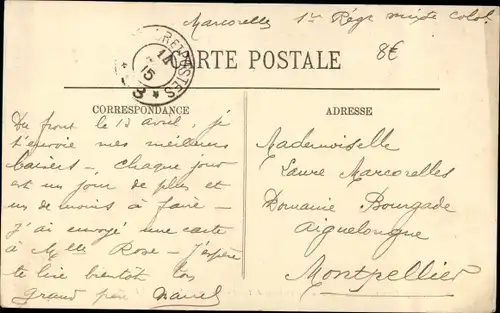 Marcorelles 1er Régt mixte colol
8€
CARTE POSTALE
TRÉSOR ET POSTES
15
* 3 *
CORRESPONDANCE
ADRESSE
Du front le 13 avril, je
t'envoie mes meilleurs
baisers – Chaque jour
est un jour de plus et
un de moins à faire –
j'ai envoyé une carte
à Melle Rose – j'espère
te lire bientôt ton
grand père
Mademoiselle
Laure Marcorelles
Domaine Bourgade
Aiguelongue
Montpellier